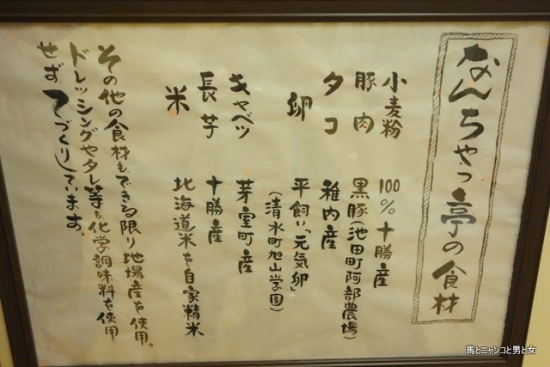 なんちゃっ亭の食材
小麦粉 100%十勝産
豚肉 黒豚(池田町阿部農場)
タコ 稚内産
卵 平飼い「元気卵」
(清水町旭山学園)
キャベツ 芽室町産
長芋 十勝産
米 北海道米を自家精米
その他の食材もできる限り地場産を使用。
ドレッシングやタレ等も化学調味料を使用
せず、てづくりしています。
馬とニャンコと男と女